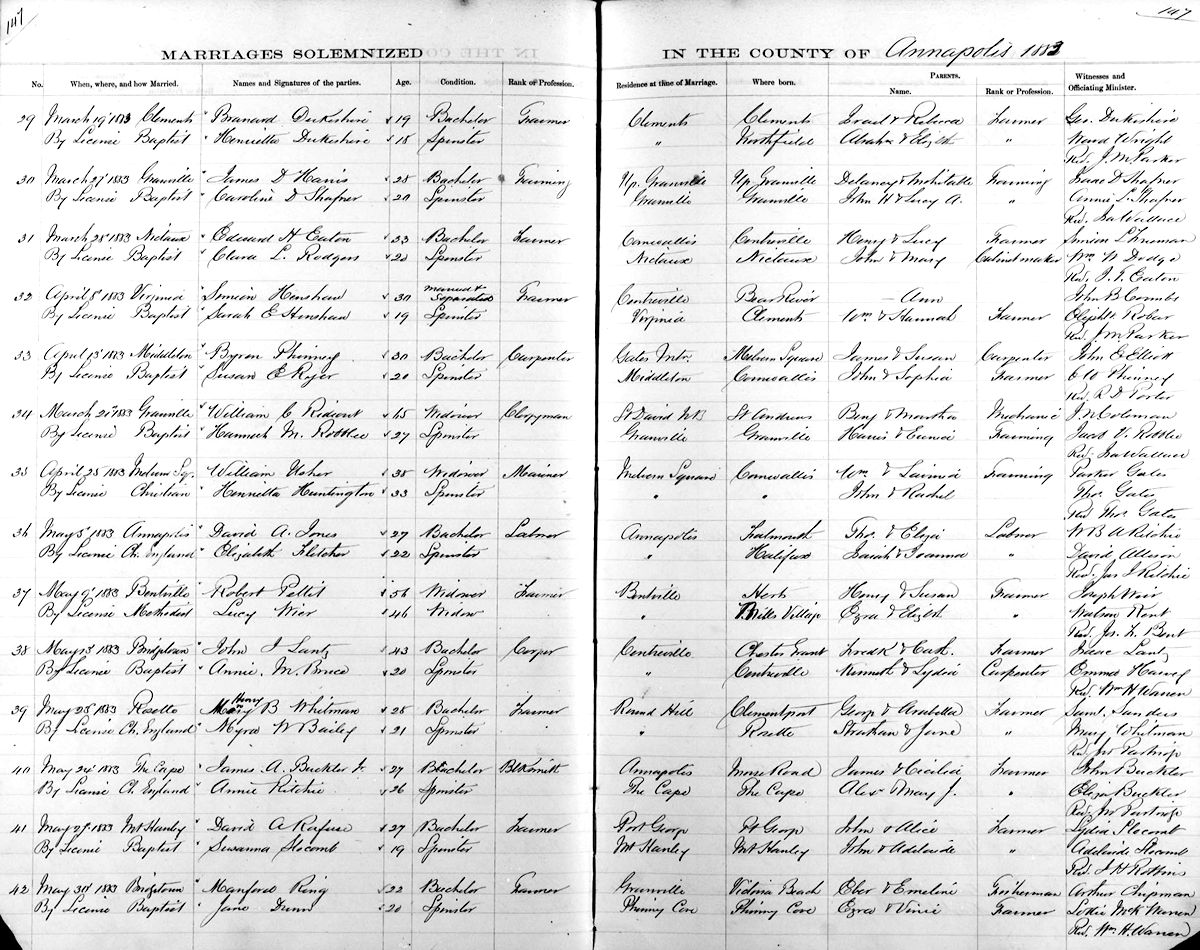 147
147
MARRIAGES SOLEMNIZED IN THE COUNTY OF Annapolis 1883
No. When, where, and how Married. Names and Signatures of the parties. Age. Condition. Rank or Profession. Residence at time of Marriage. Where born. PARENTS. Name. Rank or Profession. Witnesses and Officiating Minister.
29 March 19 1883 Clements Dukeshire 19 Bachelor Farmer Clements Clements Israel & Farmer Geo. Dukeshire
By License Baptist Henrietta Dukeshire 18 Spinster " Northfield & " Ward Wright
Rev. J. M. Parker
30 March 27 1883 Granville James D Harris 28 Bachelor Farming Up. Granville Up. Granville Delancy & Farming Isaac D Shafner
By License Baptist Caroline D Shafner 20 Spinster Granville Granville John H & Lucy A. " Annie L. Shafner
Rev. Wallace
31 March 28 1883 Nictaux Edward H Eaton 23 Bachelor Farmer Cornwallis Centreville Henry & Lucy Farmer Simeon L Freeman
By License Baptist Clara L. Rodgers 20 Spinster Nictaux Nictaux John & Mary Cabinet maker Wm W Dodge
Rev. Eaton
32 April 8 1883 Virginia Simeon Henshaw 30 Married & Separated Farmer Centreville Bear River — Ann John B Combs
By License Baptist Sarah E Henshaw 19 Spinster Virginia Clements Wm & Hannah Farmer
Rev. J M Parker
33 April 13 1883 Middleton Byron Phinney 30 Bachelor Carpenter Gates Mtn. Melvern Square James & Susan Carpenter John E Elliott
By License Baptist Susan E 20 Spinster Middleton Cornwallis John & Sophia Farmer Phinney
Rev. R D Porter
34 March 21 1883 Granville William C Rideout 45 Widower Clergyman St David NB St Andrews Benj & Martha Mechanic J N Coleman
By License Baptist Hannah M. 27 Spinster Granville Granville Harris & Eunice Farming Jacob V.
Rev. Wallace
35 April 25 1883 Melvern Sq. William 38 Widower Mariner Melvern Square Cornwallis Wm & Lavinia Farming Foster Gates
By License Christian Henrietta Huntington 33 Spinster " " John & Rachel Thos. Gates
Rev Thos. Gates
36 May 5 1883 Annapolis David A. Jones 27 Bachelor Labrer Annapolis Falmouth Thos. & Eliza Labrer W B A Ritchie
By License Ch. England Elizabeth Fletcher 22 Spinster " Halifax Isaiah & Joanna " David
Rev. Jas J Ritchie
37 May 9 1883 Bentville Robert Pettit 56 Widower Farmer Bentville Henry & Susan Farmer Joseph Weir
By License Methodist Lucy Wier 46 Widow " Mills Village Ezra & Elizbt " Watson Kent
Rev. Bent
38 May 13 1883 Bridgetown John J Lantz 43 Bachelor Centreville Chester Grant & Cath. Farmer Isaac Lantz
By License Baptist Annie. M. Bruce 20 Spinster " Centreville Kenneth & Lydia Carpenter Emma Harvey
Rev. Wm H Warren
39 May 23 1883 Rosette Henry B Whitman 28 Bachelor Farmer Round Hill Clementsport George & Arabella Farmer Saml. Sanders
By License Ch. England Myra W Bailey 21 Spinster " Rosette & Jane " Mary Whitman
Rev. Partridge
40 May 24 1883 The Cape James A. Buckler Jr 27 Bachelor Blksmith Annapolis Morse Road James & Cicilia Farmer John Buckler
By License Ch. England Annie Ritchie 26 Spinster The Cape The Cape Alex & Mary J. " Eliza Buckler
Rev Partridge
41 May 27 1883 Mt Hanley David A 27 Bachelor Farmer Port George Pt George John & Alice Farmer Lydia Slocomb
By License Baptist Susanna Slocomb 19 Spinster Mt Hanley Mt Hanley John & Adelaide " Adelaide Slocomb
Rev. J H Robbins
42 May 31 1883 Bridgetown Manford Ring 22 Bachelor Farmer Granville Victoria Beach Eber & Emeline Fisherman Arthur Chipman
By License Baptist Jane Dunn 20 Spinster Phinny Cove Phinny Cove Ezra & Farmer Warren
Rev. Wm. H. Warren